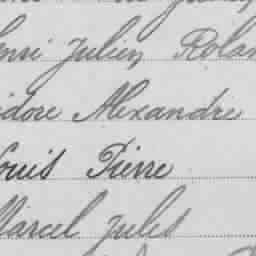 enri Julien Rolan
idore Alexandre
ouis Pierre
Marcel Jules